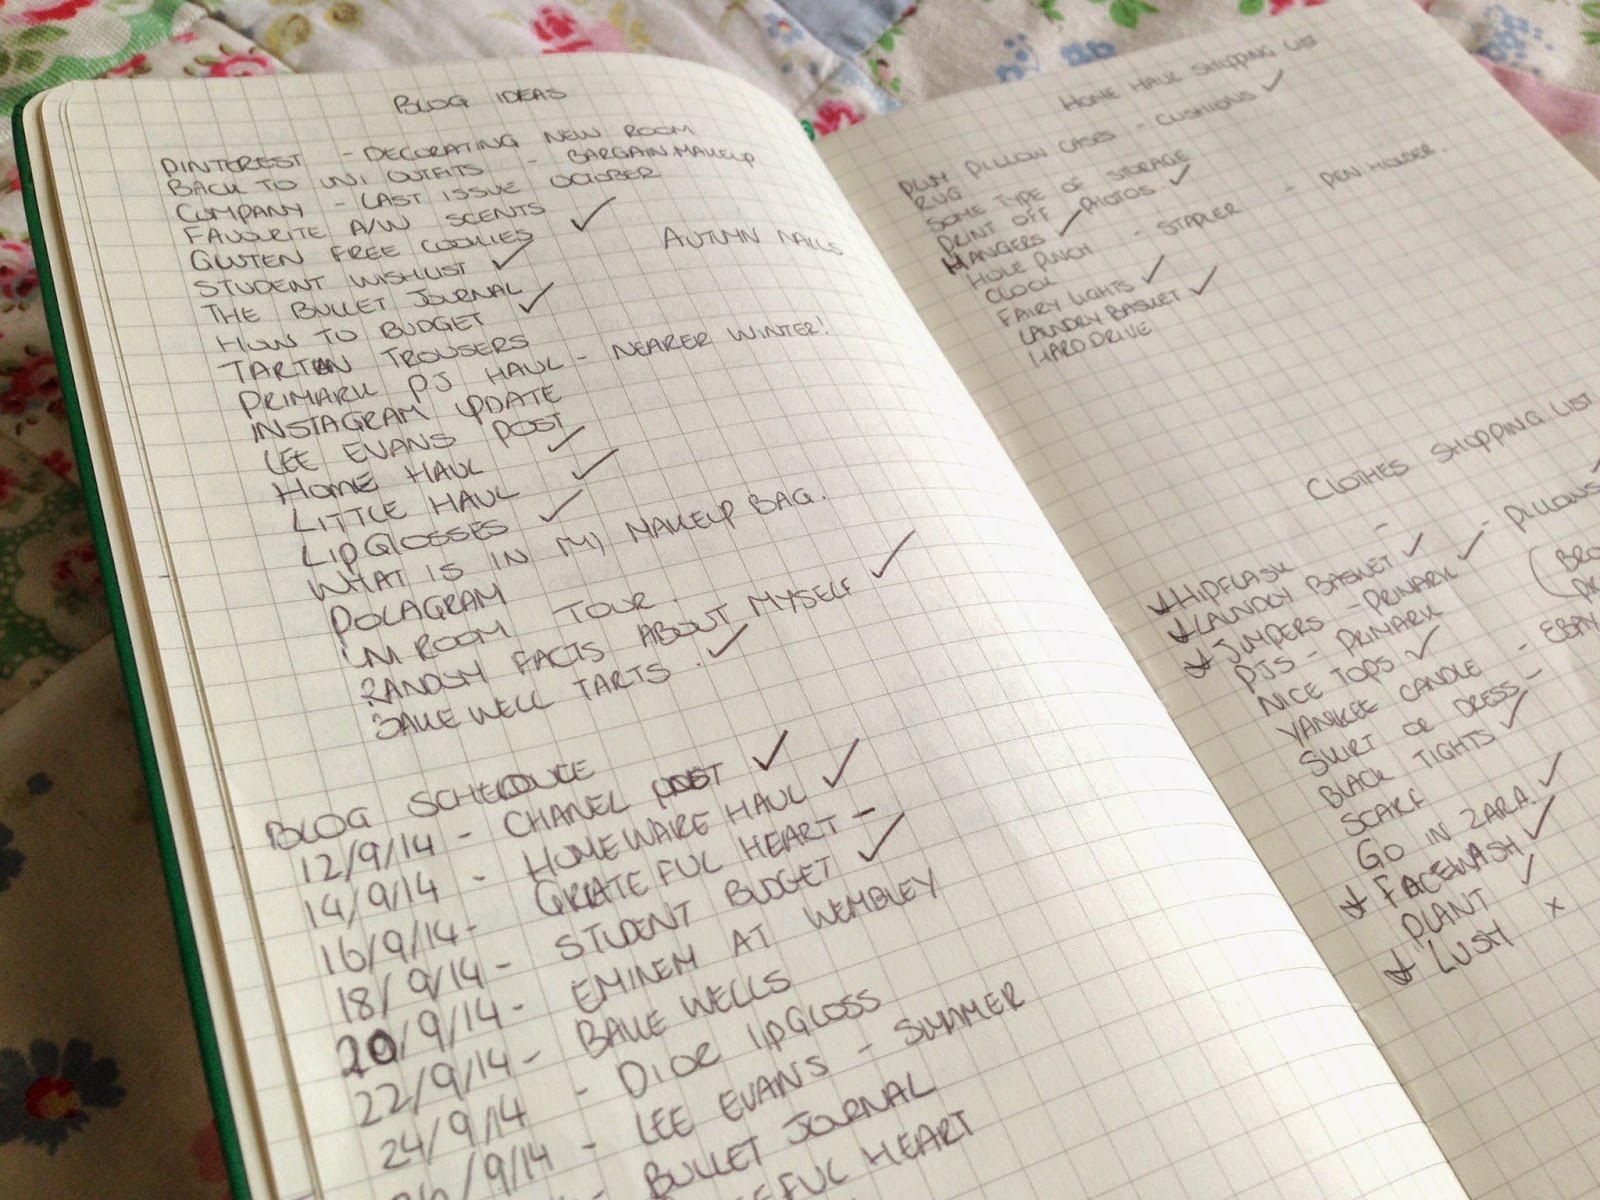 BLOG IDEAS
PINTEREST - DECORATING NEW ROOM
BACK TO UNI OUTFITS - BARGAIN MAKEUP
COMPANY - LAST ISSUE OCTOBER
FAVOURITE A/W SCENTS
GLUTEN FREE COOKIES ✓ AUTUMN NAILS
STUDENT WISHLIST ✓
THE BULLET JOURNAL
HOW TO BUDGET ✓
TARTAN TROUSERS
PRIMARK PJ HAUL - NEARER WINTER!
INSTAGRAM UPDATE
LEE EVANS POST
HOME HAUL ✓
LITTLE HAUL ✓
LIPGLOSSES ✓
WHAT IS IN MY MAKEUP BAG.
POLAGRAM
UNI ROOM TOUR.
RANDOM FACTS ABOUT MYSELF ✓
BAKEWELL TARTS. ✓
BLOG SCHEDULE
12/9/14 - CHANEL POST ✓
14/9/14 - HOMEWARE HAUL ✓
16/9/14 - GRATEFUL HEART -
18/9/14 - STUDENT BUDGET ✓
20/9/14 - EMINEM AT WEMBLEY
22/9/14 - BAKEWELLS
24/9/14 - DIOR LIPGLOSS
26/9/14 - LEE EVANS - SUMMER
- BULLET JOURNAL
HEART
HOME HAUL SHOPPING LIST
PILLOW CASES - CUSHIONS ✓
RUG
SOME TYPE OF STORAGE
PRINT OFF PHOTOS ✓
HANGERS ✓
HOLE PUNCH - STAPLER - PEN HOLDER.
CLOCK
FAIRY LIGHTS ✓
LAUNDRY BASKET ✓
HARD DRIVE
CLOTHES SHOPPING LIST
HIPFLASK -
LAUNDRY BASKET ✓ - PILLOWS ✓
JUMPERS - PRIMARK ✓
PJS - PRIMARK
NICE TOPS ✓
YANKEE CANDLE - EBAY
SKIRT OR DRESS -
BLACK TIGHTS ✓
SCARF
GO IN ZARA. ✓
FACEWASH ✓
PLANT ✓
LUSH ×